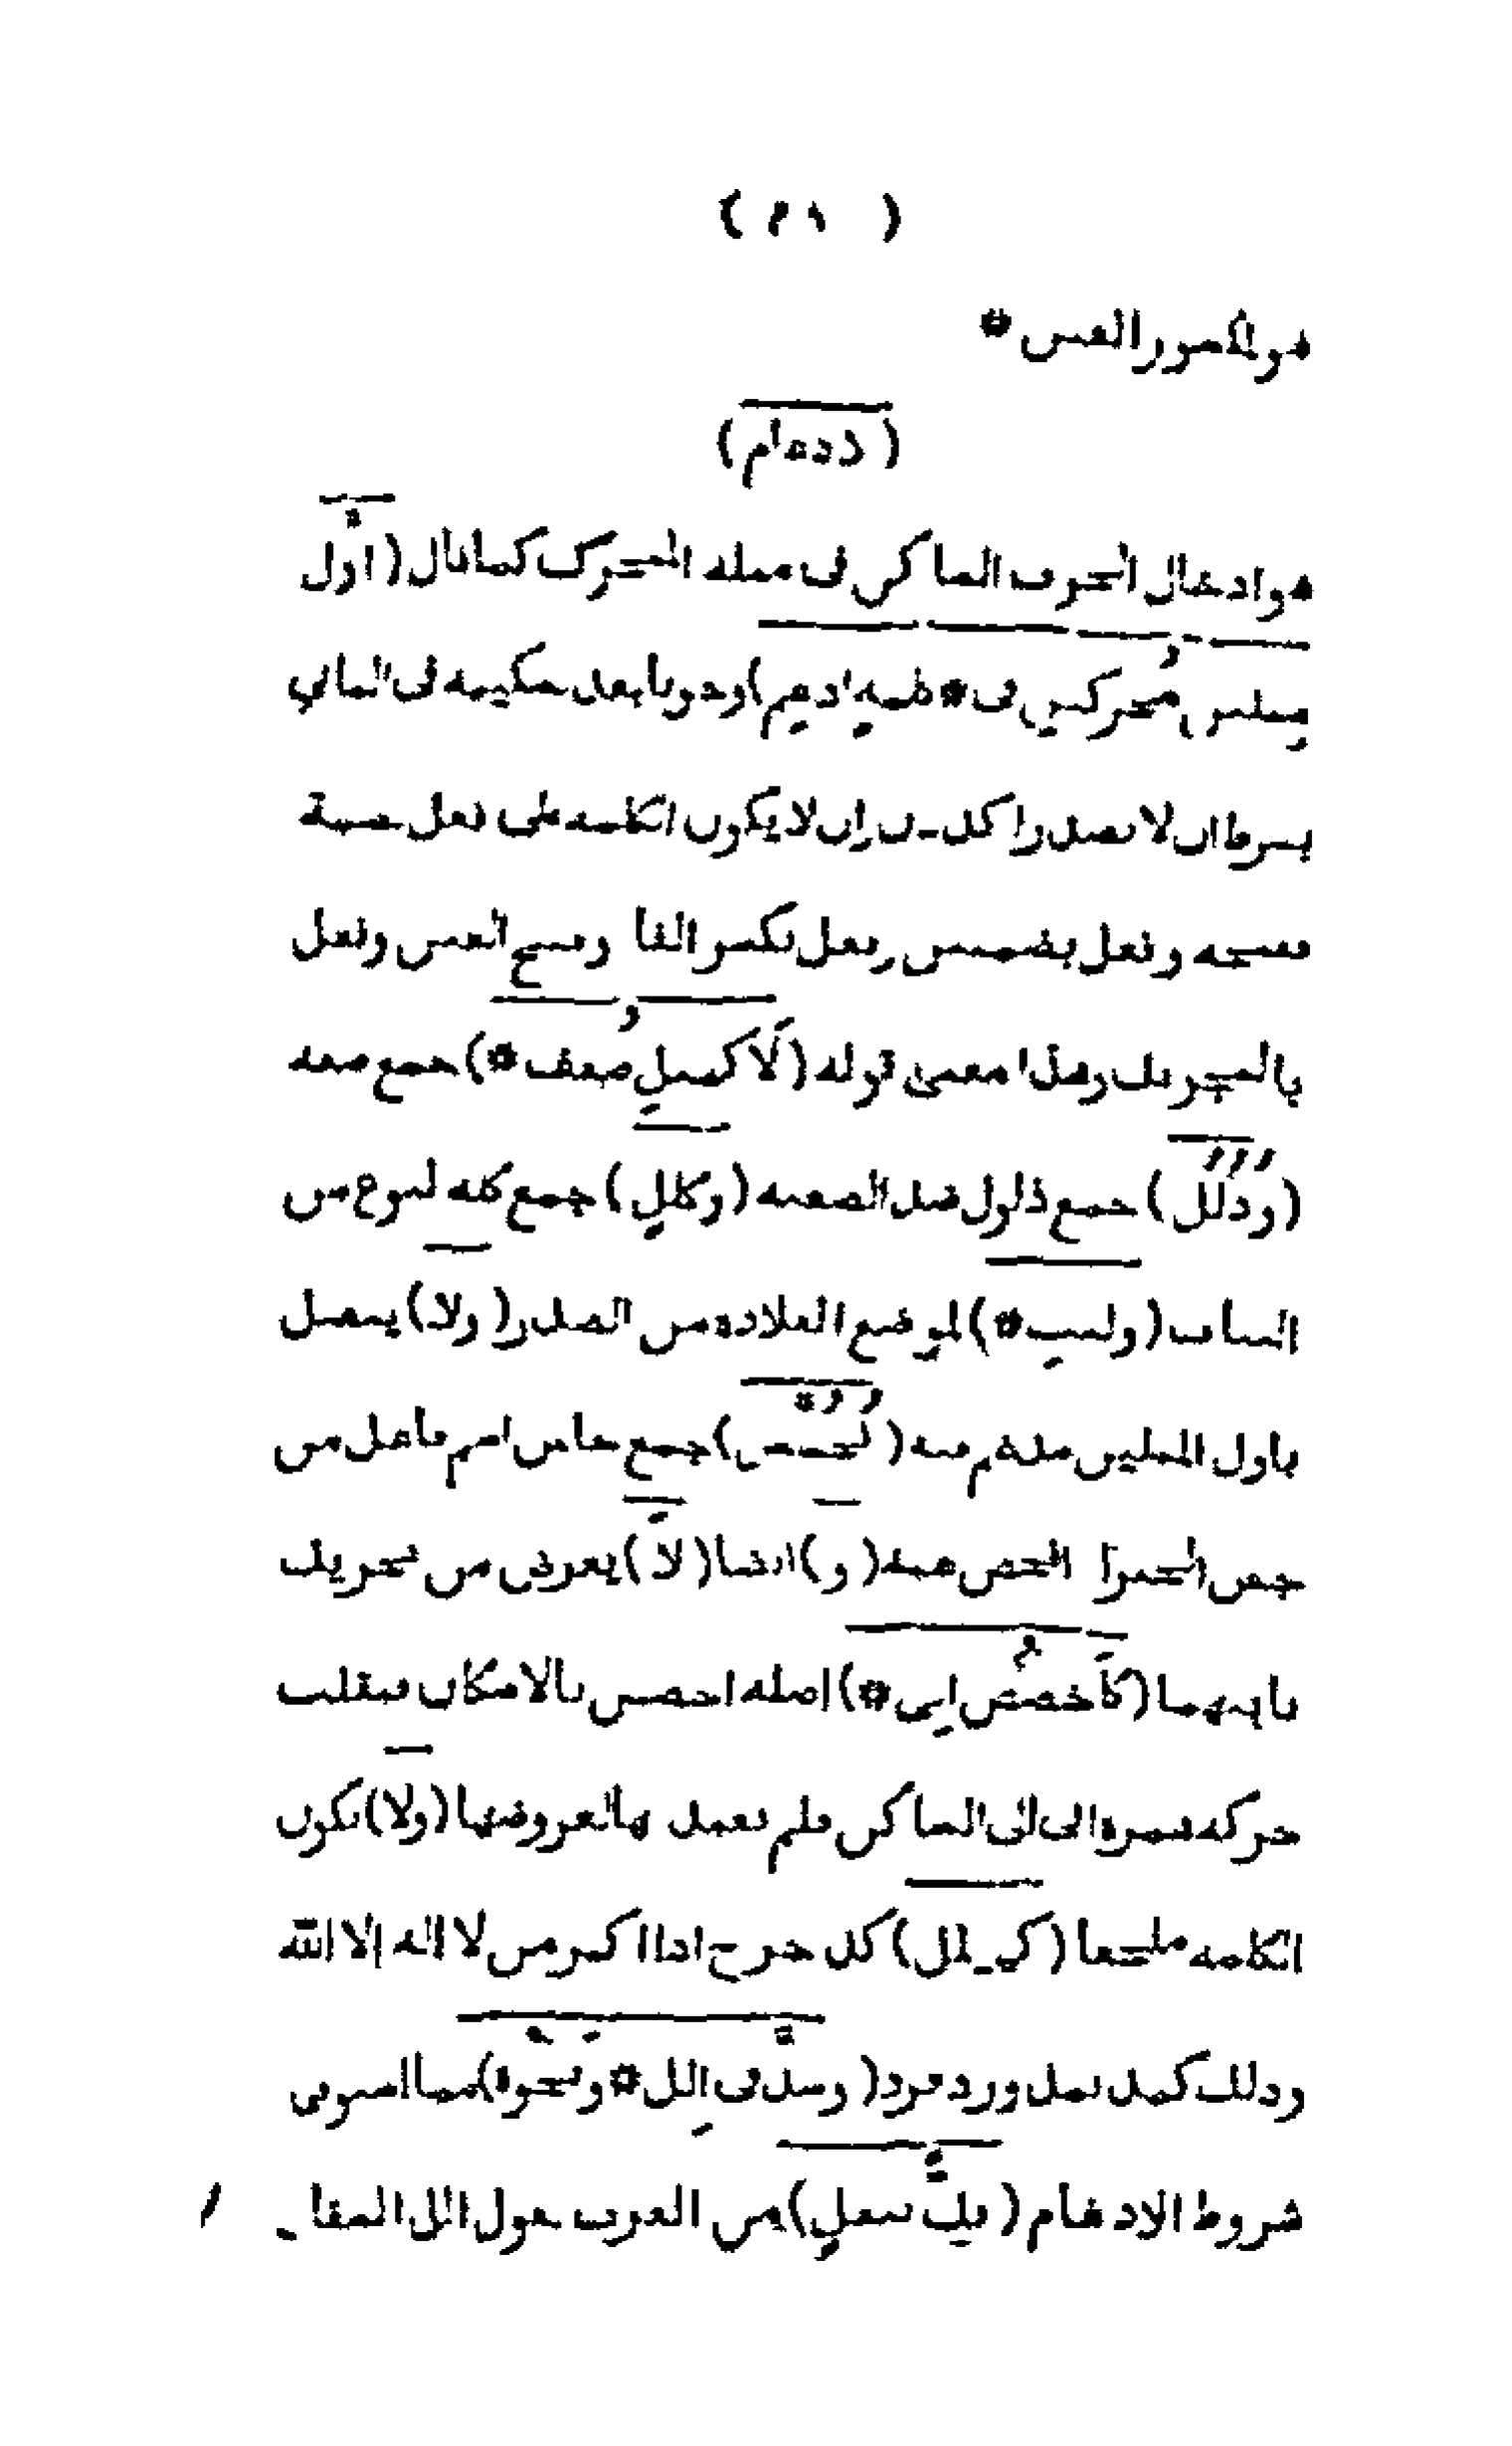 (        )
العين *
(        )
هو ادخال الحرف الساكن فى مثله المتحرك كما قال (اول
مثلين محركين فى * كلمة ادغم) وجوبا بعد تسكينه فى الثانى
بشرط ان لا يصدرا كددن وان لا يكون الكلمة على فعل بضمة
ففتحة وفعل بضمتين وفعل بكسر الفا وفتح العين وفعل
بالتحريك وهذا معنى قوله (لا كمثل صفف *) جمع صفه
(وذلل) جمع ذلول ضد الصعبة (وكلل) جمع كله لنوع من
الثياب (ولبب *) لموضع القلادة من الصدر (ولا) يتصل
باول المثلين مدغم فيه (كجسس) جمع جاس اسم فاعل من
جس الخبر اذا فحص عنه (و) ايضا (لا) يعرض من تحريك
ثانيهما (كاخصص ابى *) اصله اخصص بالاسكان فنقلت
حركة همزة ابى الى الساكن فلم تعمل بها لعروضها (ولا) تكون
الكلمة ملحقا (كهيلل) كدحرج اذا اكثر من لا اله الا الله
وذلك كمد يمد ورد يرد (وشذ فى الل * ونحوه) مما استوفى
شروط الادغام (فك بنقل) من العرب يقول الل السقا